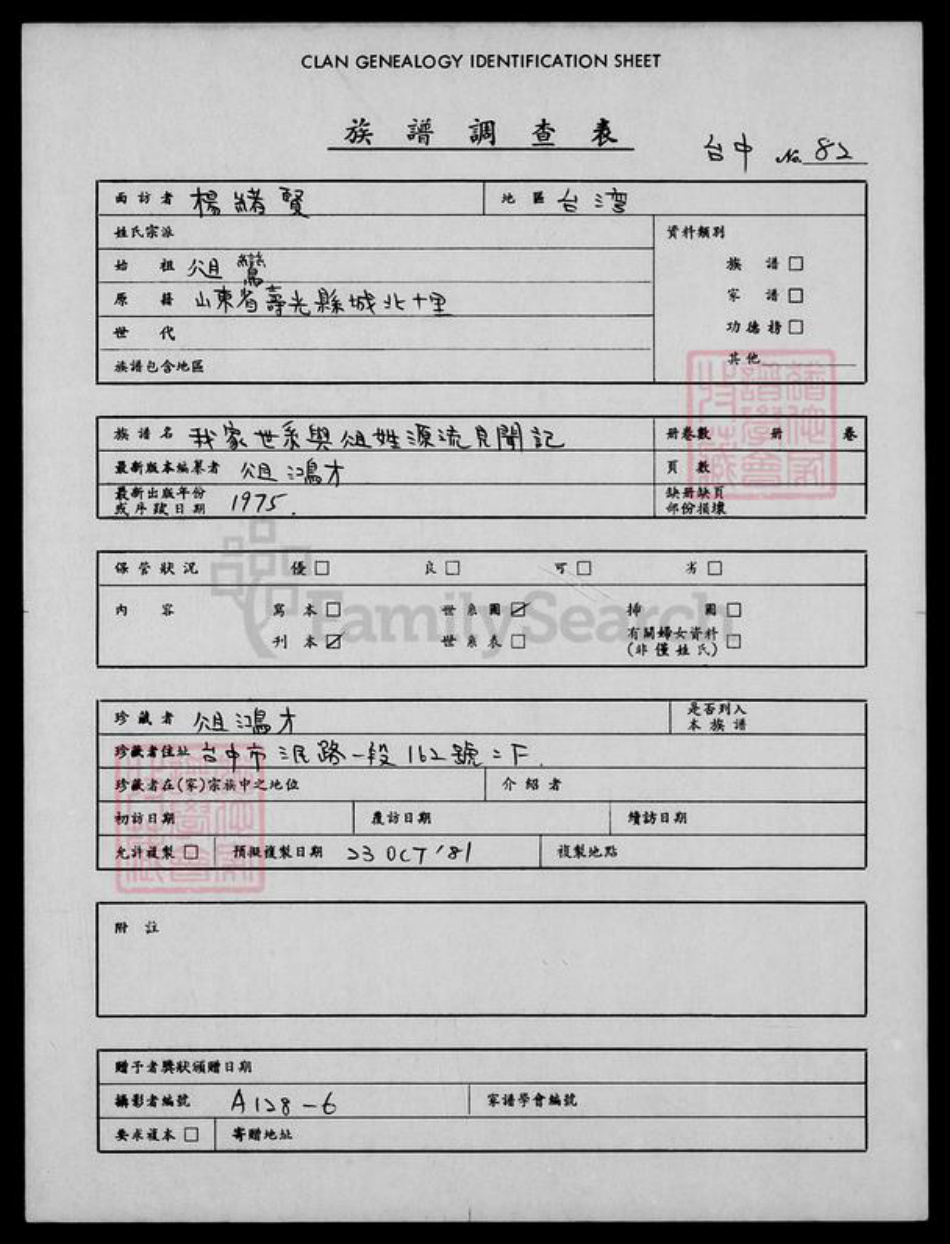 CLAN GENEALOGY IDENTIFICATION SHEET
族譜調查表
台中 No. 82
面訪者 楊緒賢 地區 台湾
姓氏宗派 資料類別
始祖 俎鸞 族譜 □
原籍 山東省壽光縣城北十里 家譜 □
世代 功德榜 □
族譜包含地區 其他
族譜名 我家世系與俎姓源流見聞記 冊卷數 冊 卷
最新版本編纂者 俎鴻才 頁數
最新出版年份或序跋日期 1975. 缺冊缺頁部份損壞
保管狀況 優 □ 良 □ 可 □ 劣 □
內容 寫本 □ 世系圖 ☑ 插圖 □
刊本 ☑ 世系表 □ 有關婦女資料(非僅姓氏) □
FamilySearch
珍藏者 俎鴻才 是否列入本族譜
珍藏者住址 台中市三民路一段162號二F.
珍藏者在(家)宗族中之地位 介紹者
初訪日期 覆訪日期 續訪日期
允許複製 □ 預擬複製日期 23 OCT '81 複製地點
附註
贈予者獎狀頒贈日期
攝影者編號 A128-6 家譜學會編號
要求複本 □ 寄贈地址